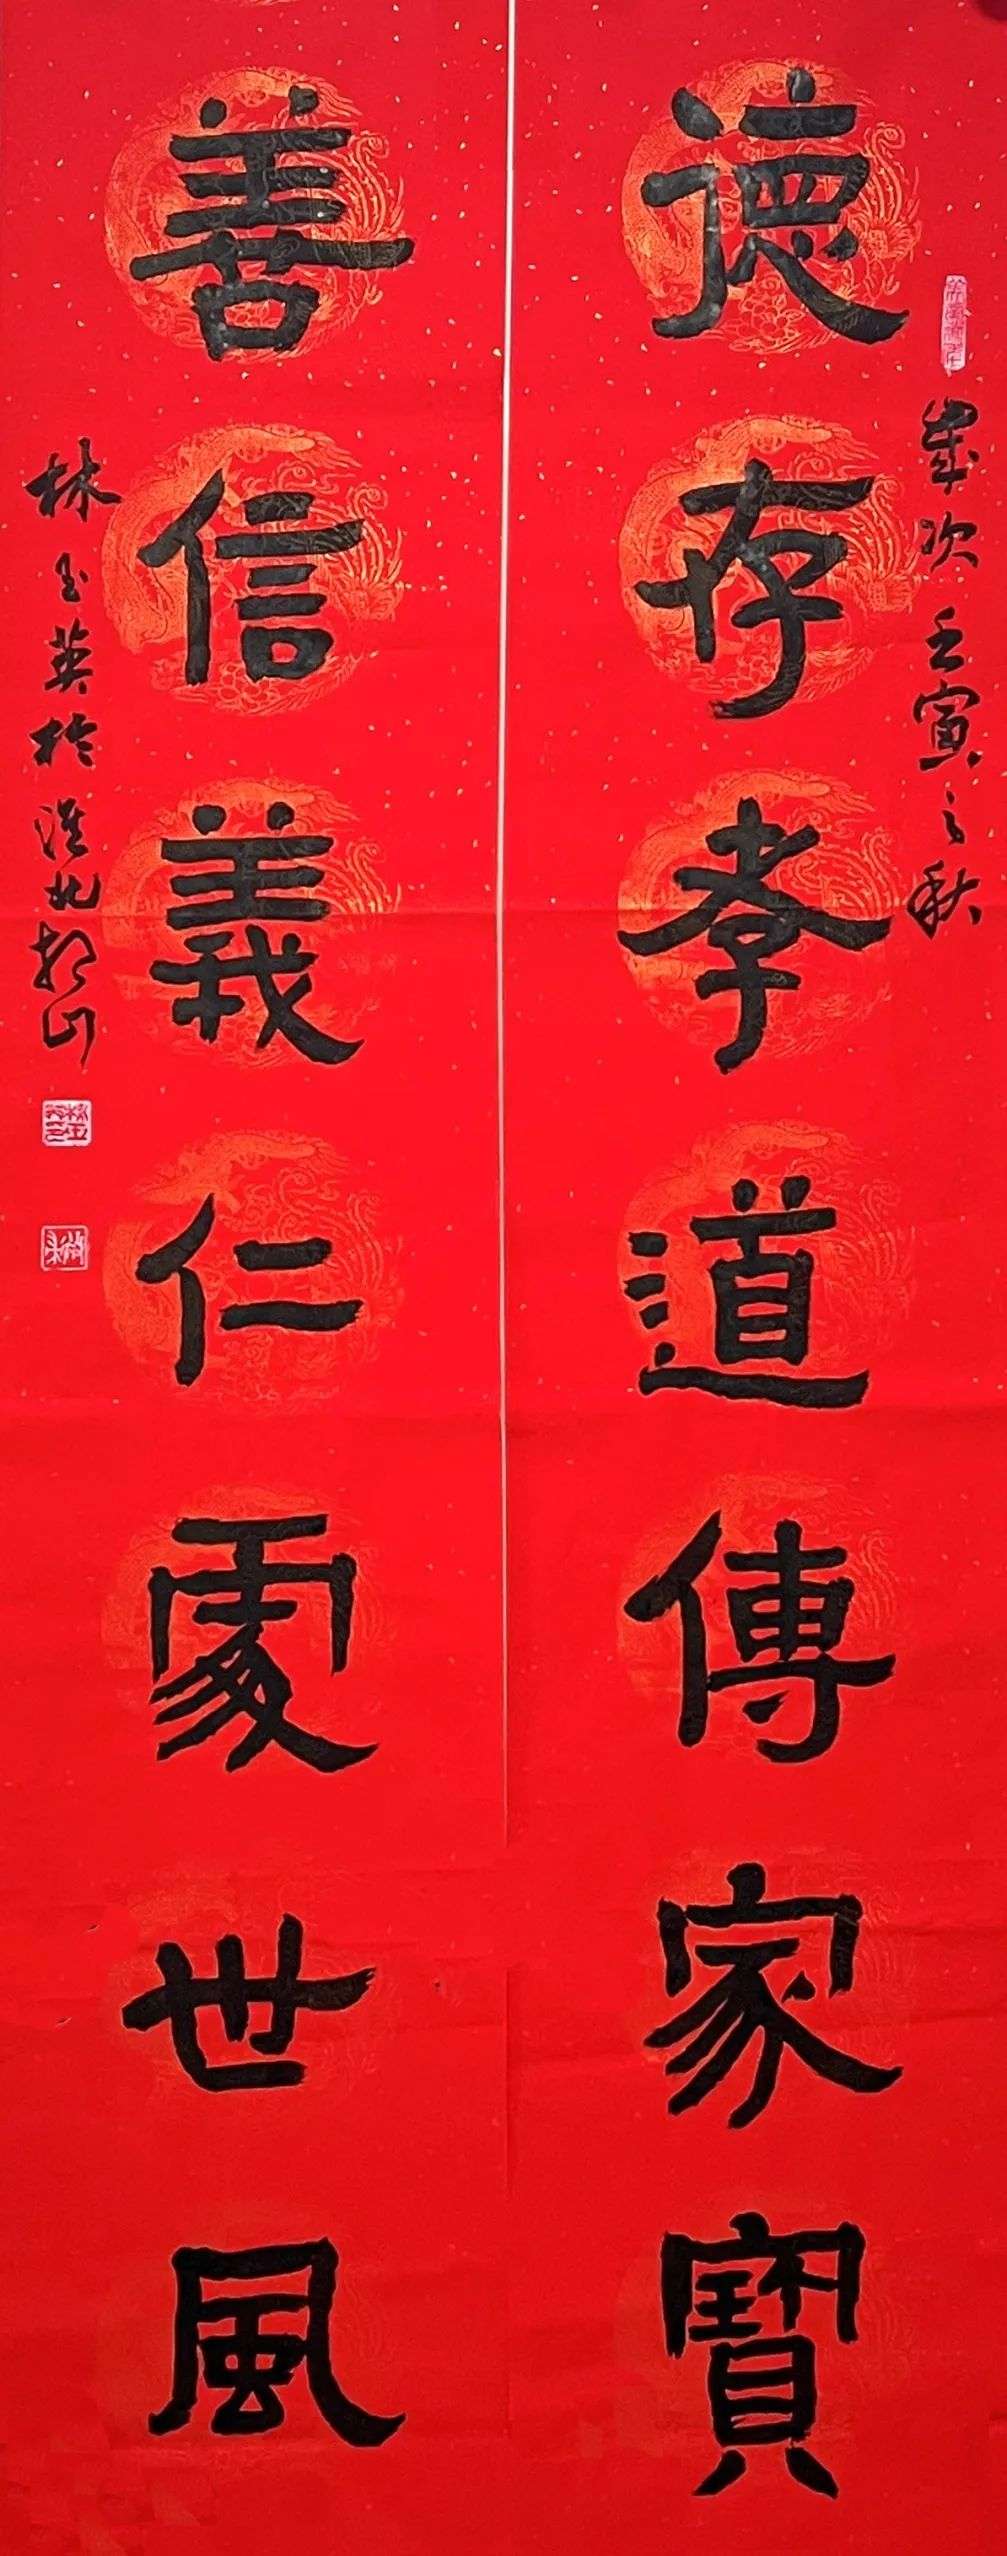 德存孝道傳家寶
歲次壬寅之秋
善信義仁處世風
林玉英於淮北相山